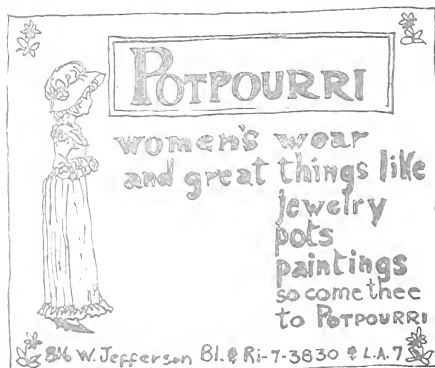 POTPOURRI
women's wear
and great things like
jewelry
pots
paintings
so come thee
to POTPOURRI
816 W. Jefferson Bl. & Ri-7-3830 & L.A. 7